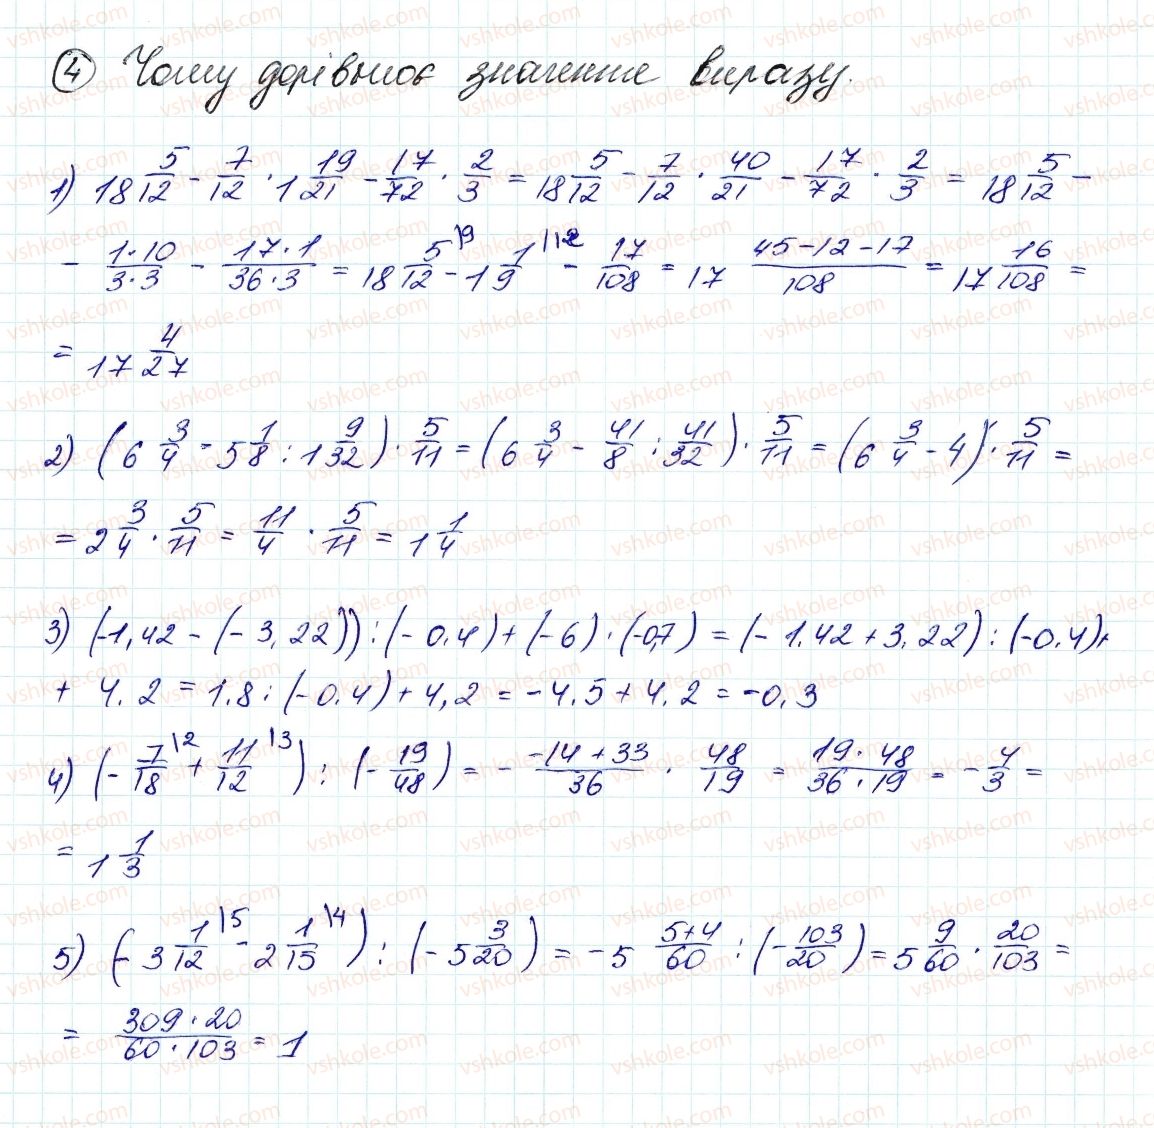 ④ Чому дорівнює значення виразу.
1) 18 5/12 - 7/12 · 1 19/21 - 17/72 · 2/3 = 18 5/12 - 7/12 · 40/21 - 17/72 · 2/3 = 18 5/12 -
- 1·10/3·3 - 17·1/36·3 = 18 5/12 \9 - 1 1/9 \12 - 17/108 = 17 45-12-17/108 = 17 16/108 =
= 17 4/27
2) (6 3/4 - 5 1/8 : 1 9/32) · 5/11 = (6 3/4 - 41/8 : 41/32) · 5/11 = (6 3/4 - 4) · 5/11 =
= 2 3/4 · 5/11 = 11/4 · 5/11 = 1 1/4
3) (-1,42 - (-3,22)) : (-0,4) + (-6) · (-0,7) = (-1,42 + 3,22) : (-0,4) +
+ 4,2 = 1,8 : (-0,4) + 4,2 = -4,5 + 4,2 = -0,3
4) (- 7/18 \2 + 11/12 \3) : (- 19/48) = - -14+33/36 · 48/19 = 19·48/36·19 = - 4/3 =
= 1 1/3
5) (-3 1/12 \5 - 2 1/15 \4) : (-5 3/20) = -5 5+4/60 : (- 103/20) = 5 9/60 · 20/103 =
= 309·20/60·103 = 1